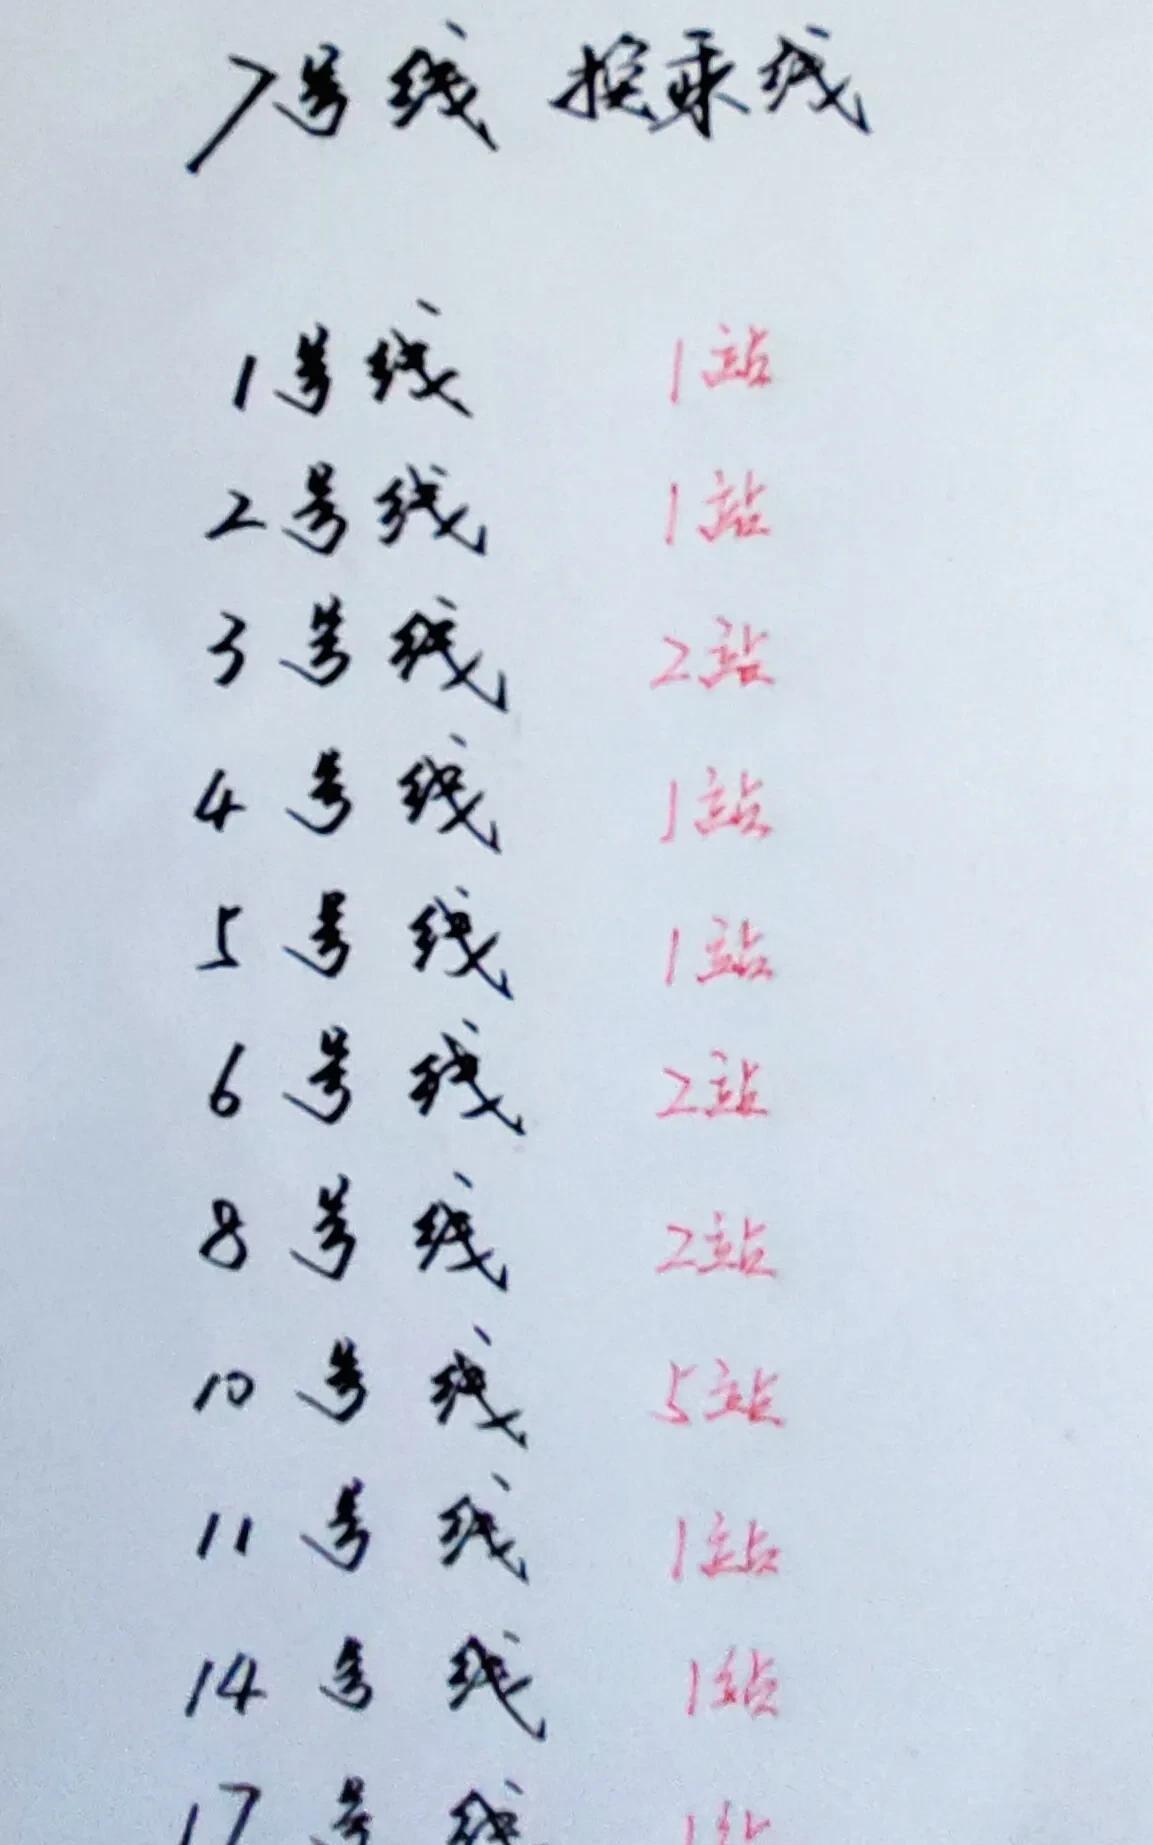 7号线 换乘线
1号线 1站
2号线 1站
3号线 2站
4号线 1站
5号线 1站
6号线 2站
8号线 2站
10号线 5站
11号线 1站
14号线 1站
17号线 1站